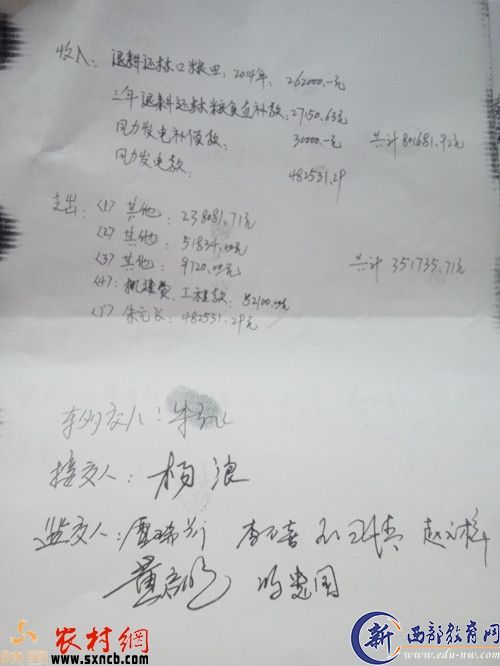 收入：退耕还林口粮田：2014年：262000.一元
三年退耕还林粮食直补款：27150.63元
风力发电补偿款：30000.一元 共计801681.92元
风力发电款：482531.29
支出：<1> 其他：238081.71元
<2> 其他：51834.00元
<3> 其他：9720.00元 共计351735.71元
<4>：机建费、工程款：52100.00元
<5> 朱元长：482531.29元
移交人：朱
接交人：杨浪
监交人：
农村網
www.sxncb.com
新 西部教育网
www.edu-nw.com